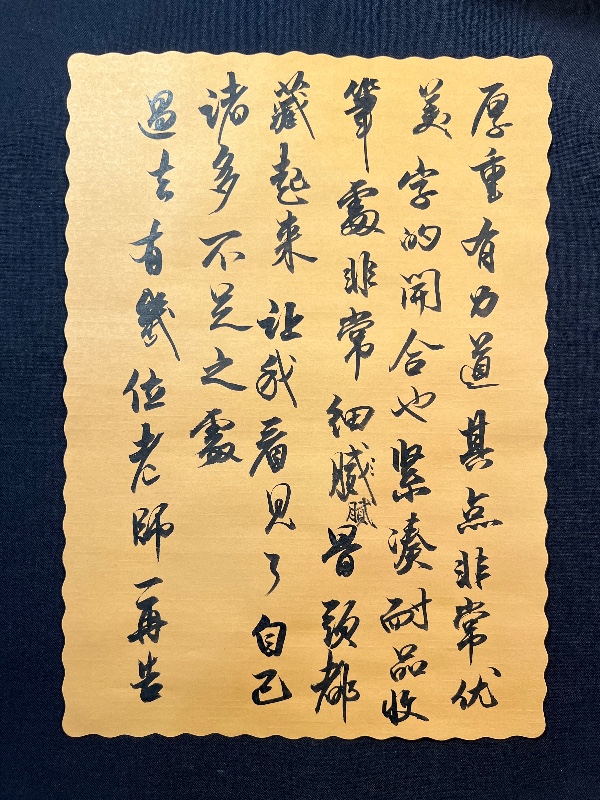 厚重有力道其点非常优
美字的開合也緊凑耐品收
筆處非常细膩冒頭都
藏起来让我看見了自己
诸多不足之處
過去有幾位老師一再告